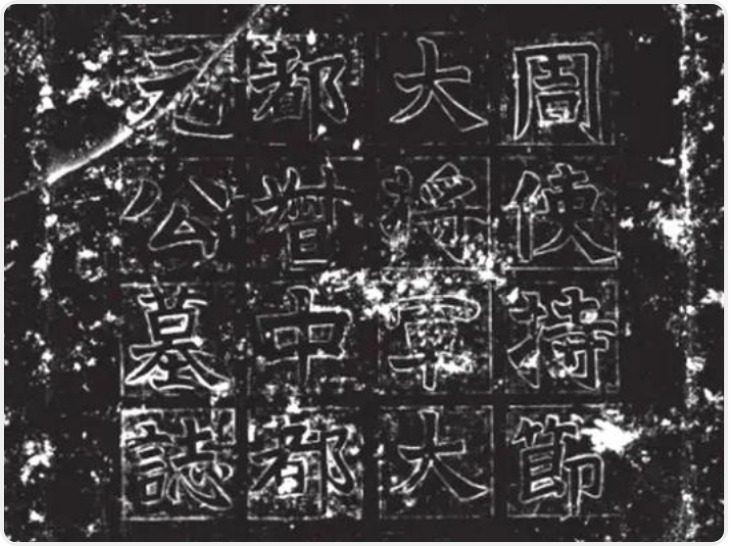 周使持節
大將軍大
都督中都
元公墓誌